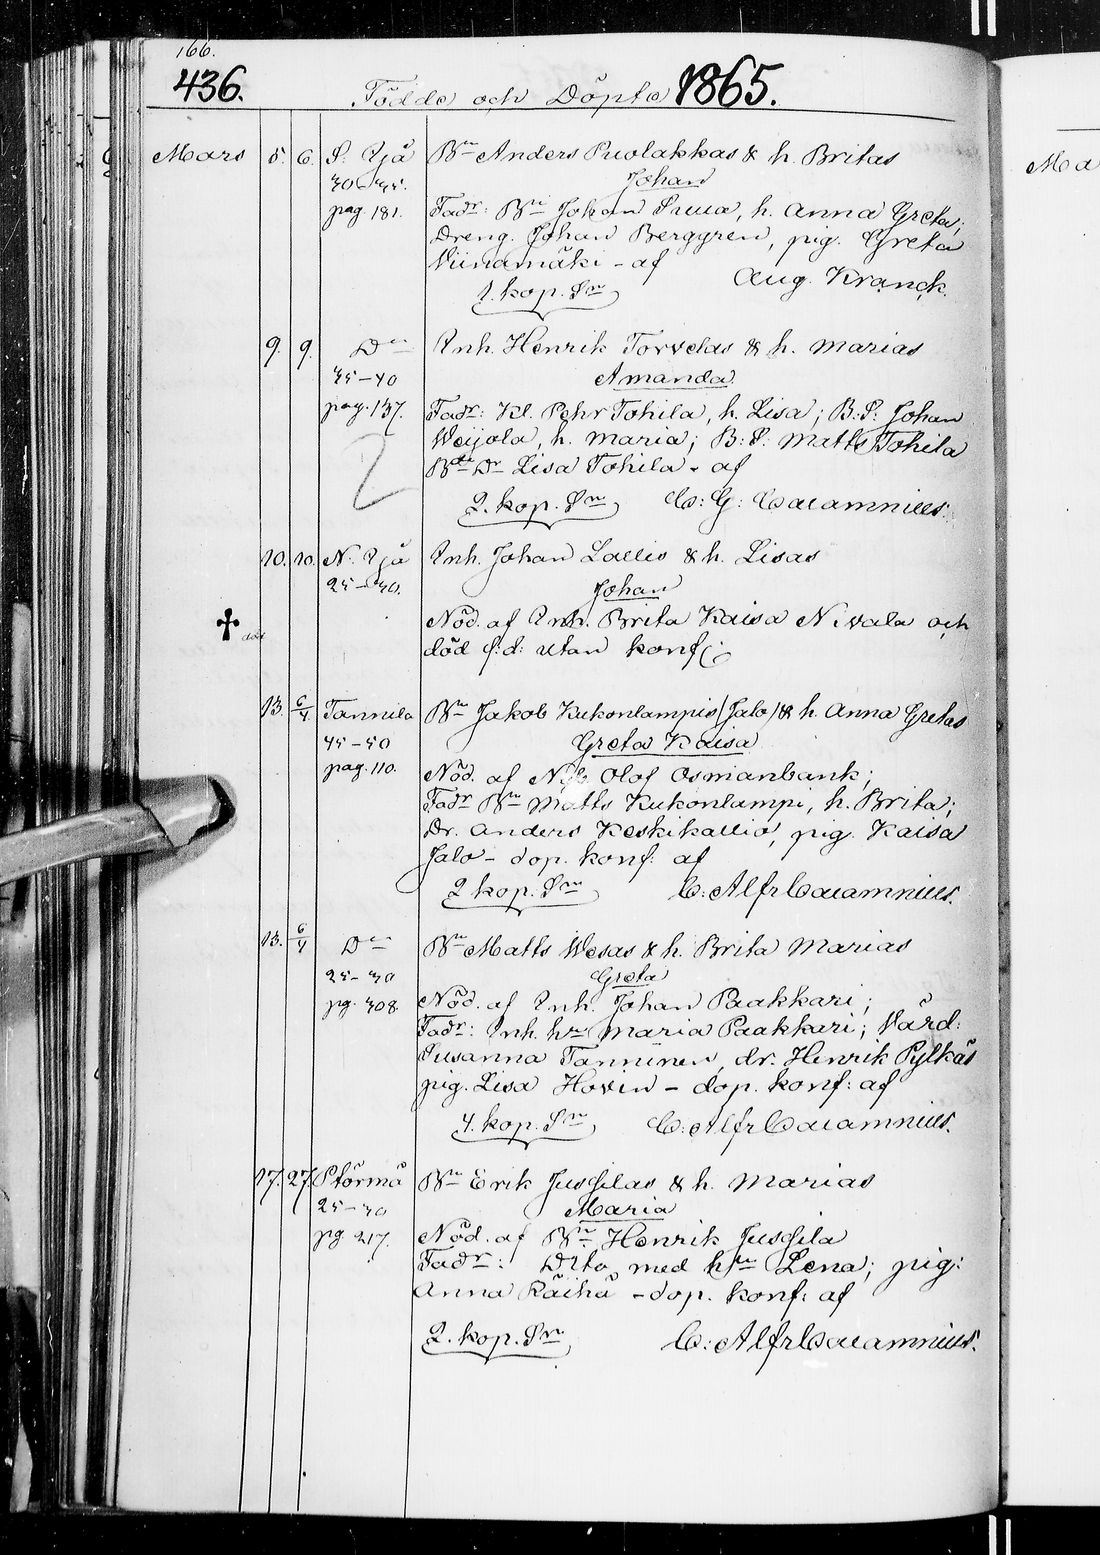 166.
436. Födde och Döpte 1865.
Mars 5. 6. S: Yjå Bn Anders Puolakkas & h. Britas
30-35. Johan
pag. 181. Fadr: Bn Johan Prua, h. Anna Greta;
Dreng. Johan Berggren, pig. Greta
Viinamäki - af Aug. Kranck.
1. kop. Sn
9. 9. Do Inh. Henrik Torvelas & h. Marias
35-40 Amanda
pag. 137. Fadr: Kl. Pehr Tohila, h. Lisa; B:S: Johan
Weijola, h. Maria; B:S: Matts Tohila
Bde Dr Lisa Tohila - af
2. kop. Sn C: G: Calamnius.
10. 10. N. Yjå Inh. Johan Lallis & h. Lisas
25-30. Johan
död Nöd. af Inh. Brita Kaisa Nivala och
död s: d: utan konf:
13. 6/4 Tannila Bn Jakob Kukonlampis (Jalo) & h. Anna Gretas
45-50 Greta Kaisa
pag. 110. Nöd. af Nyb Olof Osmanbank;
Fadr Bn Matts Kukonlampi, h. Brita;
Dr. Anders Keskikallio, pig. Kaisa
Jalo - dop. konf: af
2 kop. Sn C: Alfr Calamnius.
13. 6/4 Do Bn Matts Wesas & h. Brita Marias
25-30 Greta
pg. 308. Nöd. af Inh. Johan Paakkari;
Fadr: Inh. hn Maria Paakkari; Värd:
Susanna Tanninen, dr. Henrik Pylkäs
pig. Lisa Hovin - dop. konf: af
4. kop. Sn C: Alfr Calamnius.
17. 27. Ptörmä Bn Erik Jussilas & h. Marias
25-30 Maria
pg 217. Nöd. af Bn Henrik Jussila
Fadr: Dito med hn Lena; pig:
Anna Räihä - dop. konf: af
2. kop. Sn C: Alfr Calamnius.
Ma